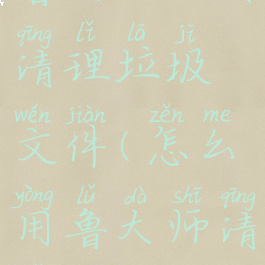 qīng lǐ lā jī
清理垃圾
wén jiàn zěn me
文件(怎么
yòng lǔ dà shī qīng
用鲁大师清